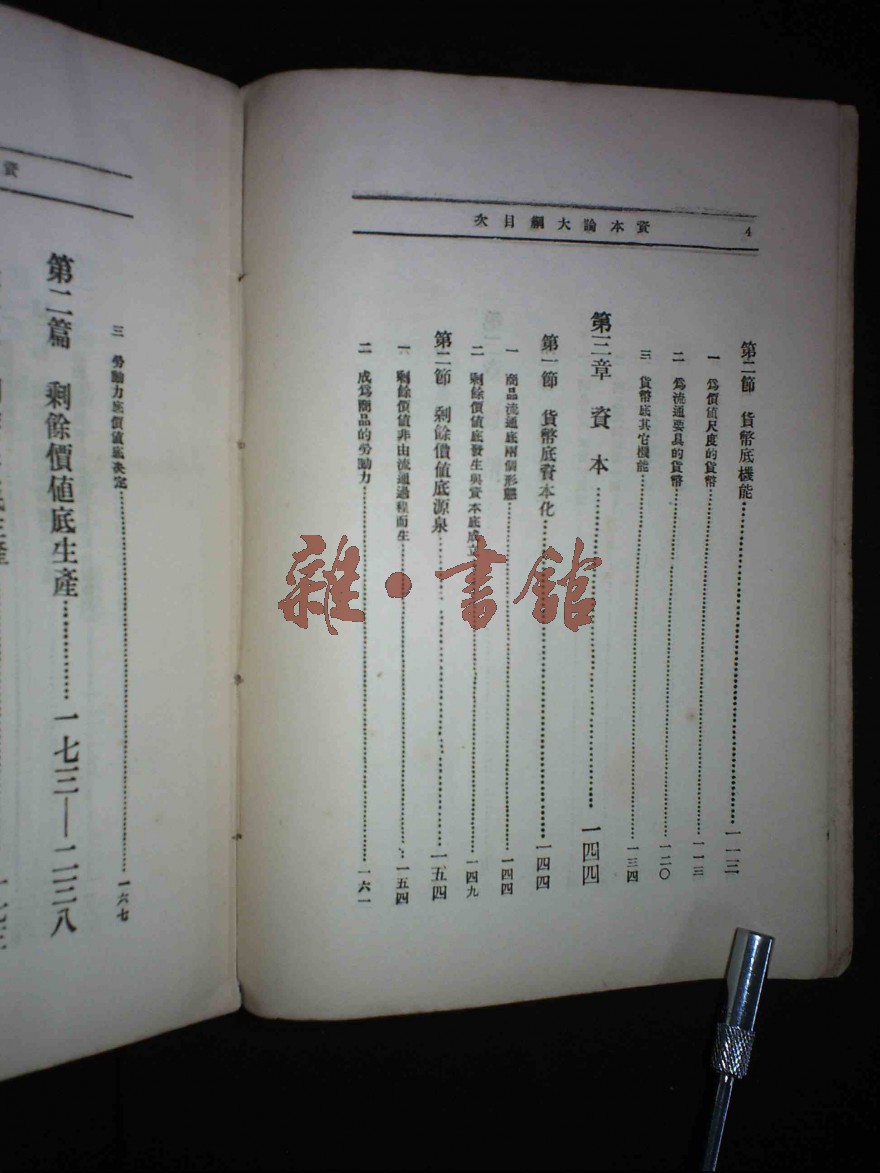 資本論大綱目次 4
第二節 貨幣底機能 一一三
一 爲價値尺度的貨幣 一一三
二 爲流通要具的貨幣 一二〇
三 貨幣底其它機能 一三四
第三章 資本 一四四
第一節 貨幣底資本化 一四四
一 商品流通底兩個形態 一四四
二 剩餘價値底發生與資本底成立 一四九
第二節 剩餘價値底源泉 一五四
一 剩餘價値非由流通過程而生 一五四
二 成爲商品的勞動力 一六一
資
三 勞動力底價値底決定 一六七
第二篇 剩餘價値底生產 一七三—二三八
雜·書館